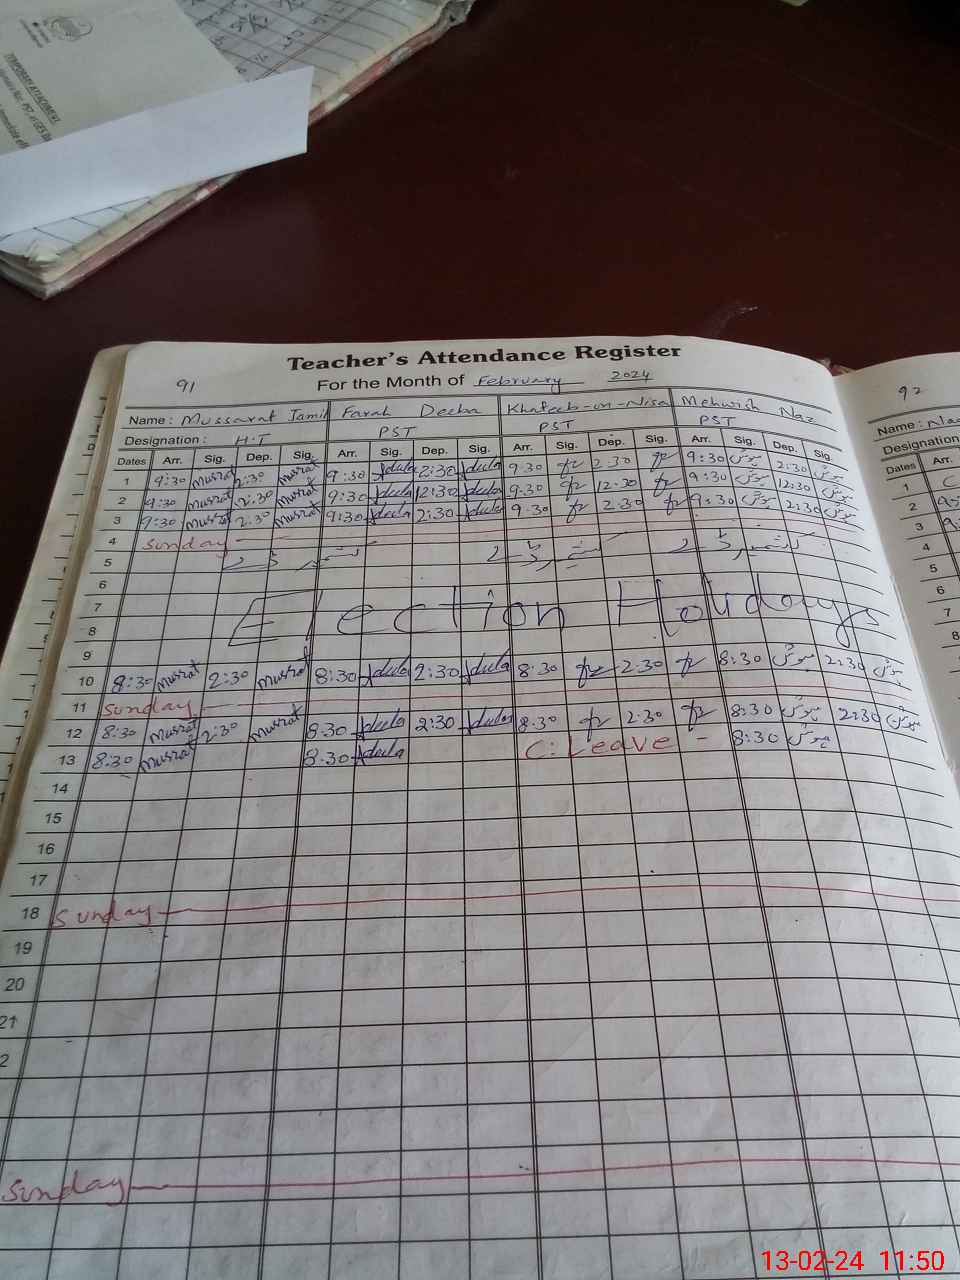 TEMPORARY ATTACHMENT
91
Teacher's Attendance Register
For the Month of February 2024
Name: Mussarat Jamil Farah Deeba Khateeb-un-Nisa Mehwish Naz
Designation: H.T PST PST PST
Dates Arr. Sig. Dep. Sig. Arr. Sig. Dep. Sig. Arr. Sig. Dep. Sig. Arr. Sig. Dep. Sig.
1 9:30 Musrat 2:30 Musrat 9:30 2:30 9.30 2.30 9:30 مہوش 2:30 مہوش
2 9:30 Musrat 2:30 Musrat 9:30 12:30 9.30 12.30 9:30 مہوش 12:30 مہوش
3 9:30 Musrat 2:30 Musrat 9:30 2:30 9.30 2.30 9:30 مہوش 2:30 مہوش
4 Sunday
5 کشمیر ڈے کشمیر ڈے کشمیر ڈے
6
7 Election Holidays
8
9
10 8:30 Musrat 2:30 Musrat 8:30 2:30 8:30 2:30 8:30 مہوش 2:30 مہوش
11 Sunday
12 8:30 Musrat 2:30 Musrat 8.30 2:30 8.30 2.30 8:30 مہوش 2:30 مہوش
13 8:30 Musrat 8.30 C: Leave - 8:30 مہوش
14
15
16
17
18 Sunday
19
20
21
2
Sunday
92
Name:
Designation
Dates Arr.
1
2
3
4
5
6
7
8
13-02-24 11:50